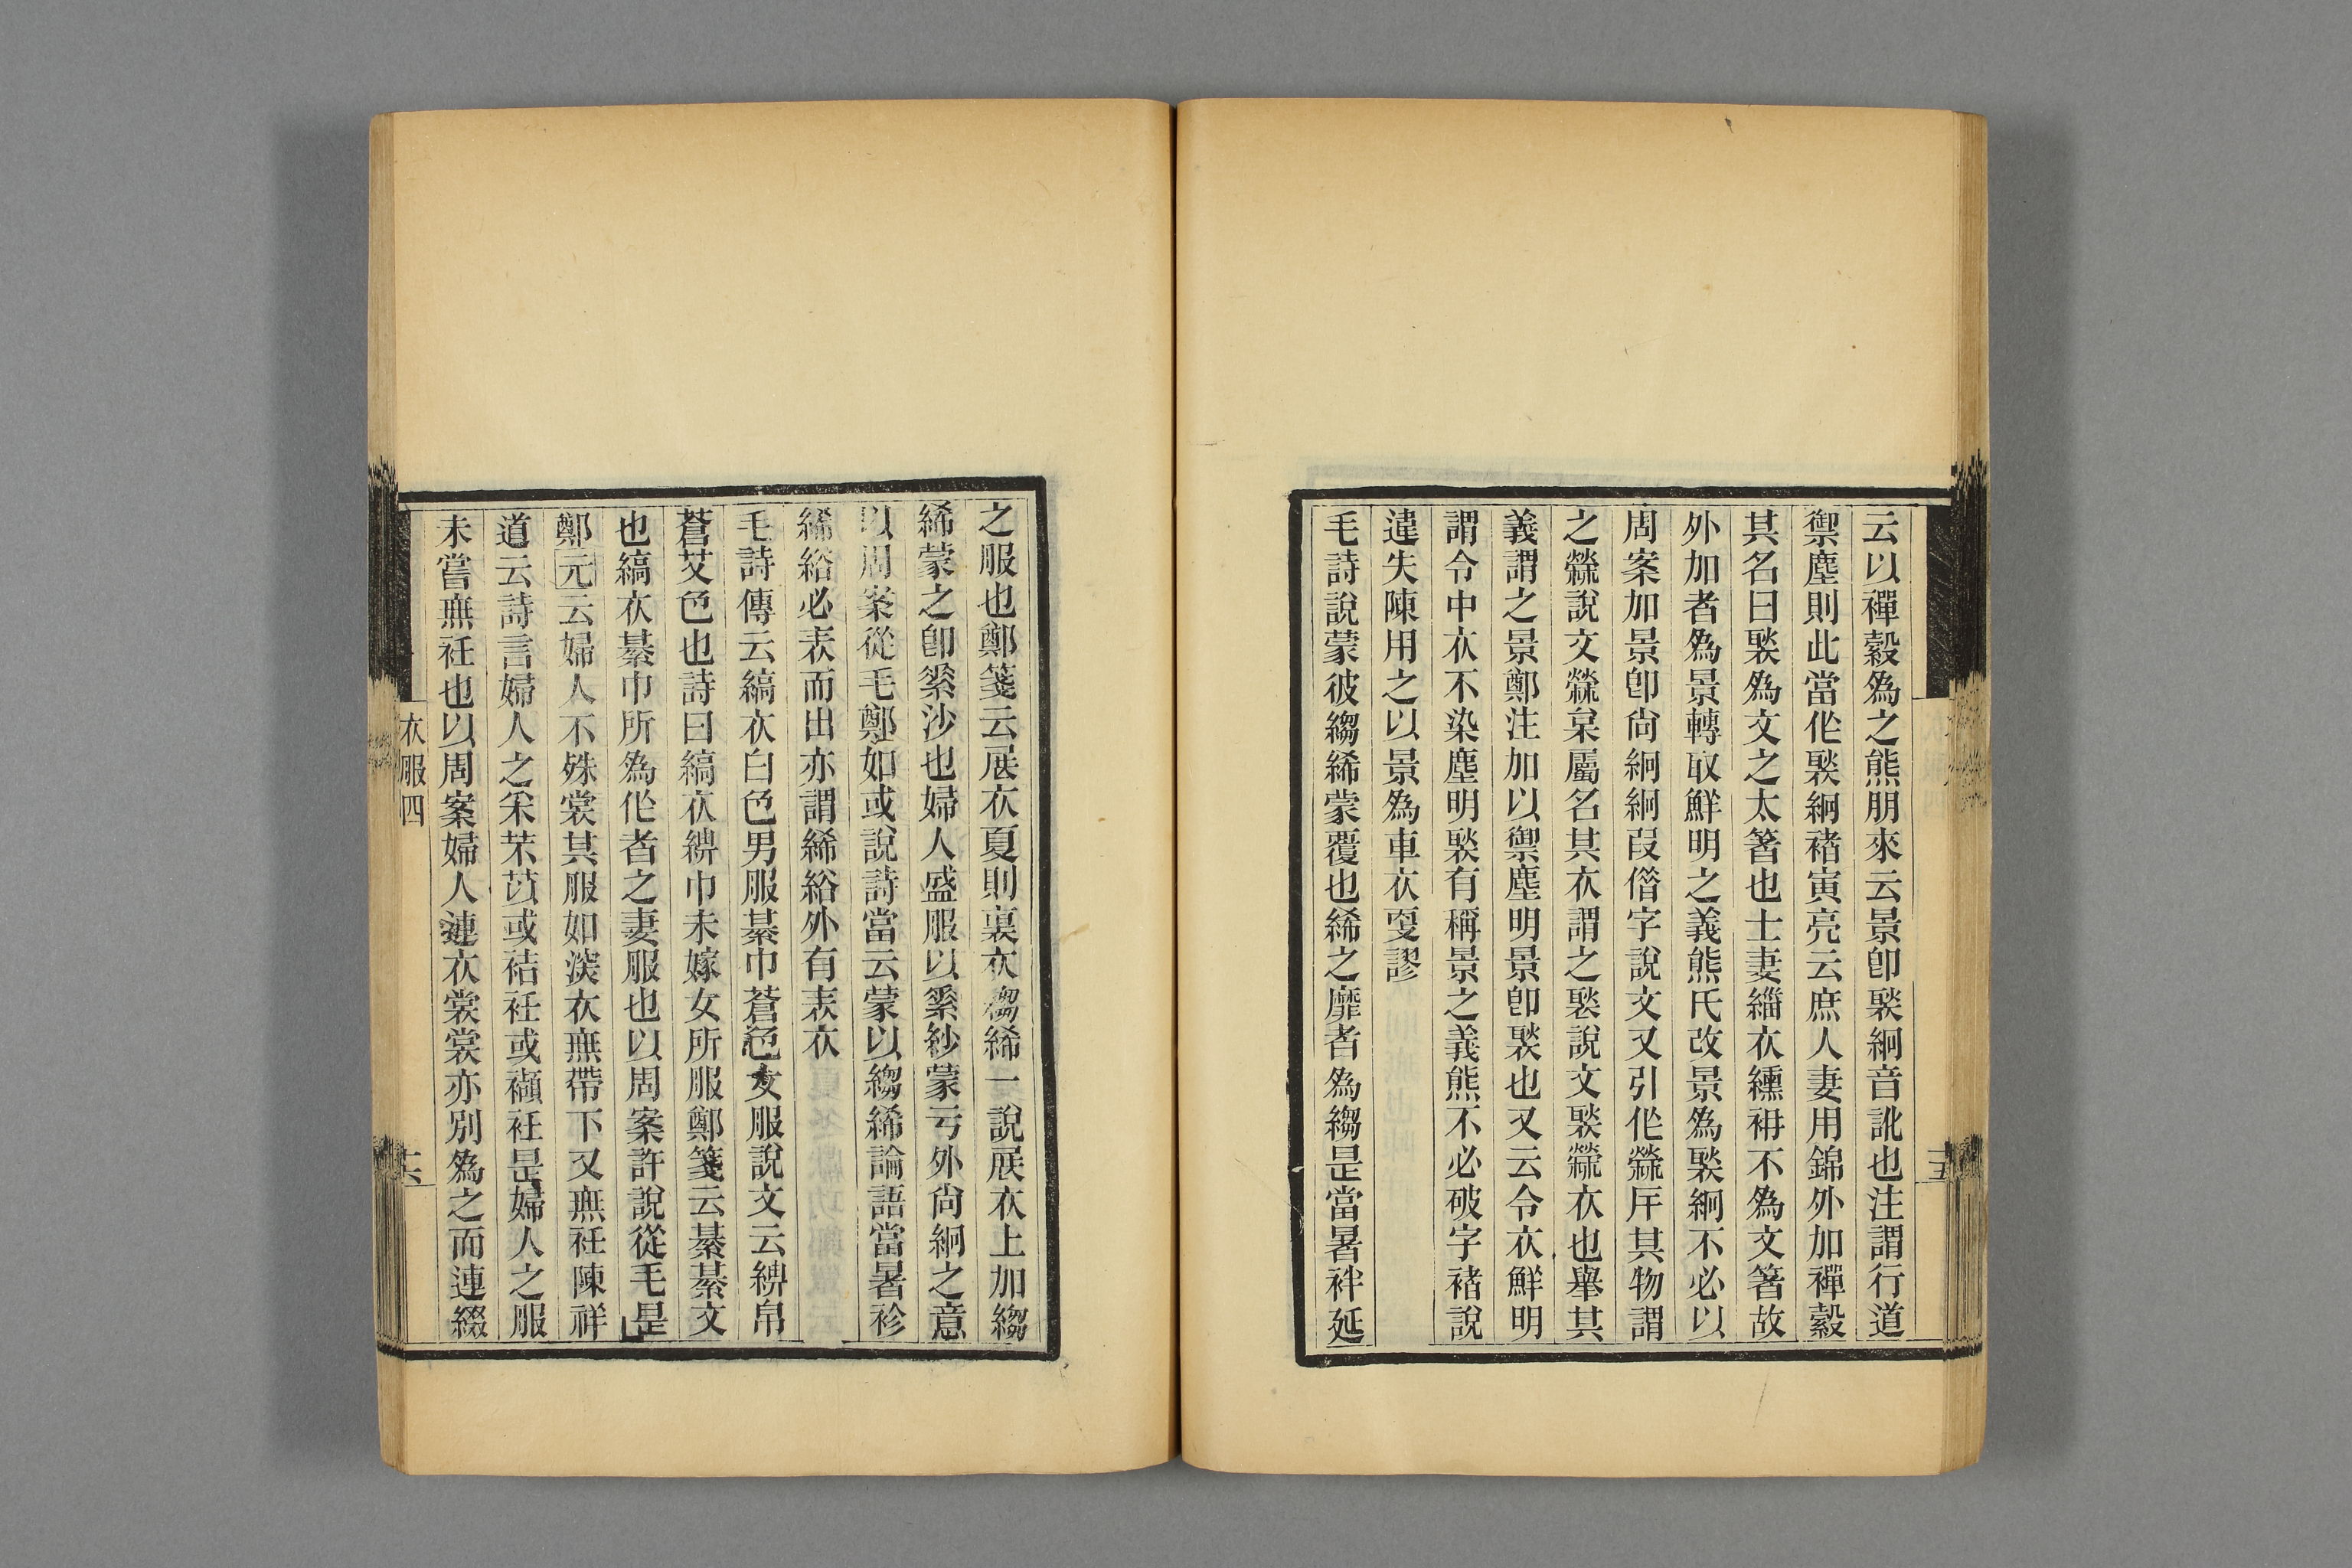 云以襌縠爲之熊朋來云景卽褧絅音訛也注謂行道
禦塵則此當作褧絅褚寅亮云庶人妻用錦外加襌縠
其名曰褧爲文之太箸也士妻緇衣纁袡不爲文箸故
外加者爲景轉取鮮明之義熊氏改景爲褧絅不必以
周案加景卽尙絅絅叚僣字說文又引作𦾵㡿其物謂
之𦾵說文𦾵枲屬名其衣謂之褧說文褧𦾵衣也舉其
義謂之景鄭注加以禦塵明景卽褧也又云令衣鮮明
謂令中衣不染塵明褧有稱景之義熊不必破字褚說
違失陳用之以景爲車衣㪅謬
毛詩說蒙彼縐絺蒙覆也絺之靡者爲縐是當暑袢延
之服也鄭箋云展衣夏則裏衣縐絺一說展衣上加縐
絺蒙之卽絫沙也婦人盛服以絫紗蒙亏外尙絅之意
以周案從毛鄭如或說詩當云蒙以縐絺論語當暑袗
絺綌必表而出亦謂絺綌外有表衣
毛詩傳云縞衣白色男服綦巾蒼色女服說文云綥帛
蒼艾色也詩曰縞衣綥巾未嫁女所服鄭箋云綦綦文
也縞衣綦巾所爲作者之妻服也以周案許說從毛是
鄭元云婦人不殊裳其服如深衣無帶下又無衽陳祥
道云詩言婦人之采芣苡或袺衽或襭衽是婦人之服
未嘗無衽也以周案婦人連衣裳裳亦別爲之而連綴
衣服四
十六
十五